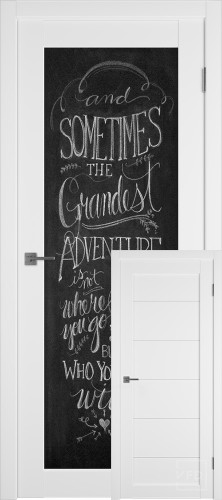 and
SOMETIMES
THE
Grandest
ADVENTURE
is not
where
you go
BU
WHO YO
wit